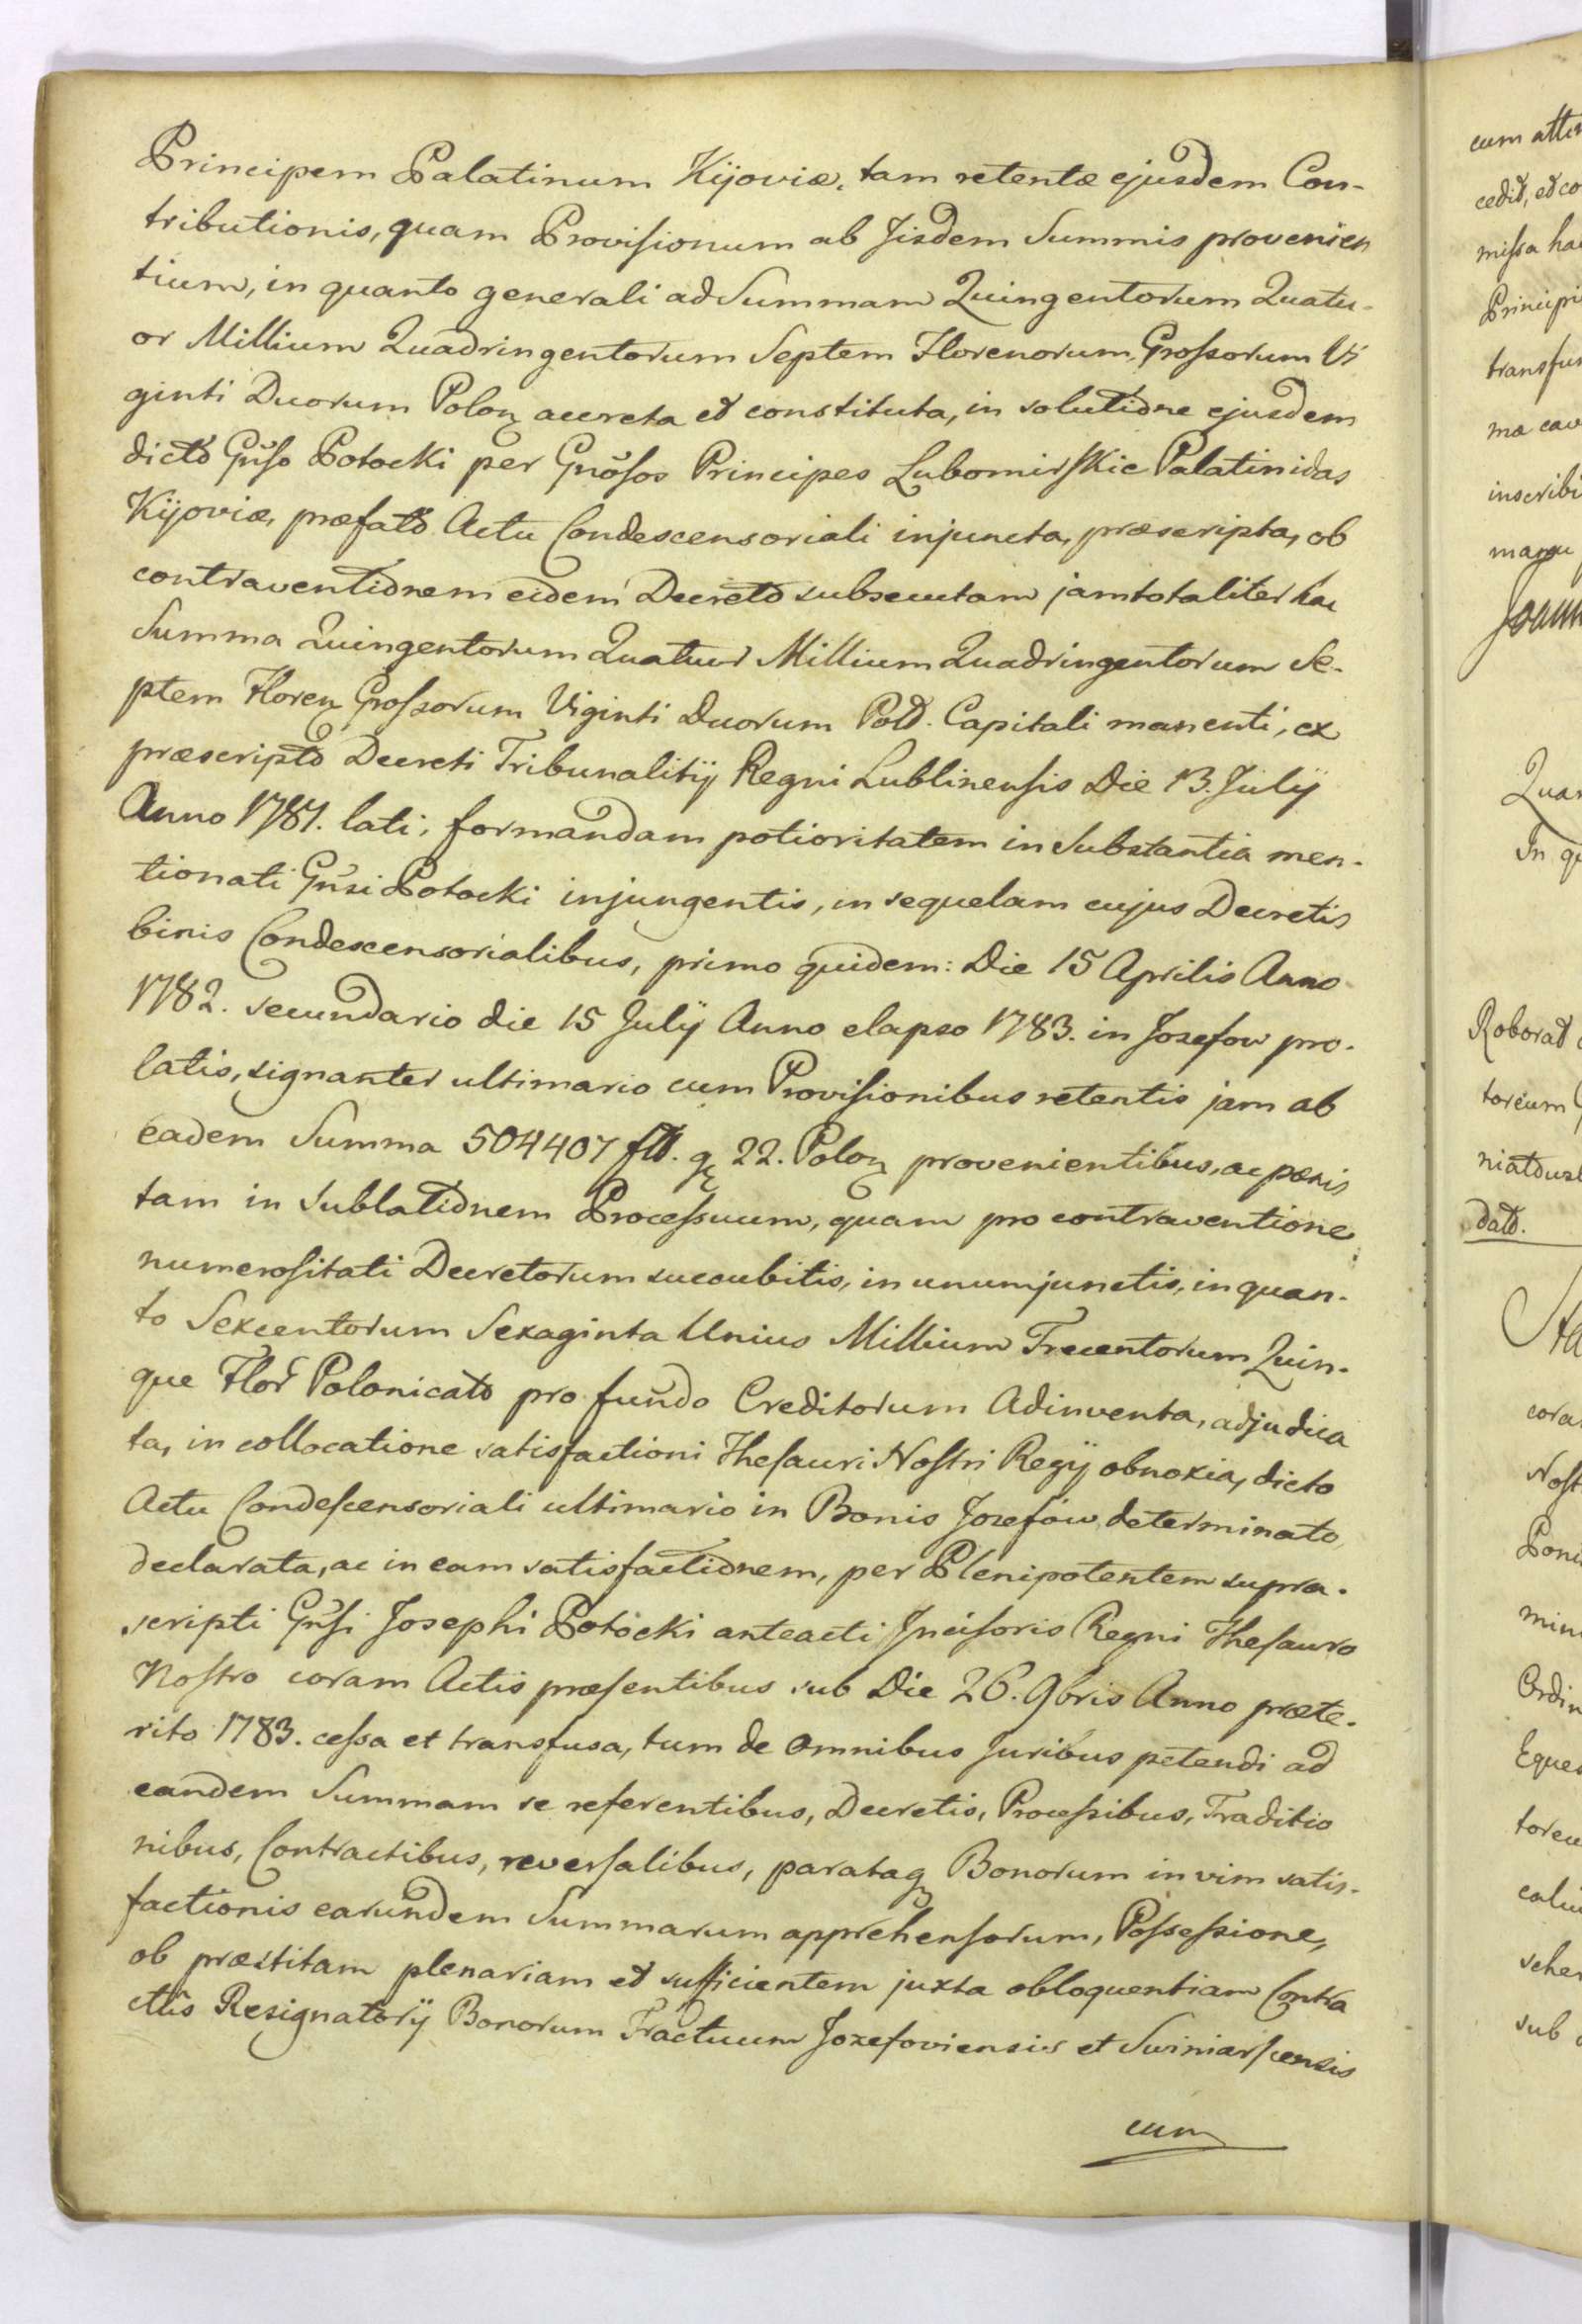 Principem Palatinum Kijoviæ, tam retentæ ejusdem Con-
tributionis, quam Provisionum ab Jisdem Summis provenien
tium, in quanto generali ad Summam Quingentorum Quatu-
or Millium Quadringentorum Septem Florenorum Grossorum Vi
ginti Duorum Polon accreta et constituta, in solutione ejusdem
dicto Gnso Potocki per Gnosos Principes Lubomirskie Palatinidas
Kijoviæ, præfato Actu Condescensoriali injuncta, præscripta, ob
contraventionem eidem Decreto subsecutam jam totaliter hac
Summa Quingentorum Quatuor Millium Quadringentorum Se-
ptem Floren Grossorum Viginti Duorum Pol. Capitali manenti, ex
præscripto Decreti Tribunalitij Regni Lublinensis Die 13. Julij
Anno 1781. lati, formandam potioritatem in Substantia men-
tionati Gnsi Potocki injungentis, in sequelam cujus Decretis
binis Condescensorialibus, primo quidem: Die 15 Aprilis Anno
1782. secundario die 15 Julij Anno elapso 1783. in Jozefow pro-
latis, signanter ultimario cum Provisionibus retentis jam ab
eadem Summa 504407 fl. g 22. Polon provenientibus, ac pœnis
tam in sublationem Processuum, quam pro contraventione
numerositati Decretorum succubitis, in unum junctis, in quan-
to Sexcentorum Sexaginta Unius Millium Trecentorum Quin-
que Flor Polonicato pro fundo Creditorum Adinventa, adjudica
ta, in collocatione satisfactioni Thesauri Nostri Regij obnoxia, dicto
Actu Condescensoriali ultimario in Bonis Jozefów determinato
declarata, ac in eam satisfactionem, per Plenipotentem supra-
scripti Gnsi Josephi Potocki anteacti Incisoris Regni Thesauro
Nostro coram Actis præsentibus sub Die 26. 9bris Anno præte-
rito 1783. cessa et transfusa, tum de omnibus Juribus petendi ad
eandem Summam se referentibus, Decretis, Processibus, Traditio
nibus, Contractibus, reversalibus, parataq Bonorum in vim satis-
factionis earundem Summarum apprehensorum, Possessione,
ob præstitam plenariam et sufficientem juxta obloquentiam Contra
ctus Resignatorij Bonorum Tractuum Jozefoviensis et Swiniarscensis
cum
cum
cedit, et co
missa ha
Principi
transfu
ma cav
inscribi
manu
Joann
Quar
In q
Roborat
torium
dato.
cora
Nost
min
Ordin
Eques
sub